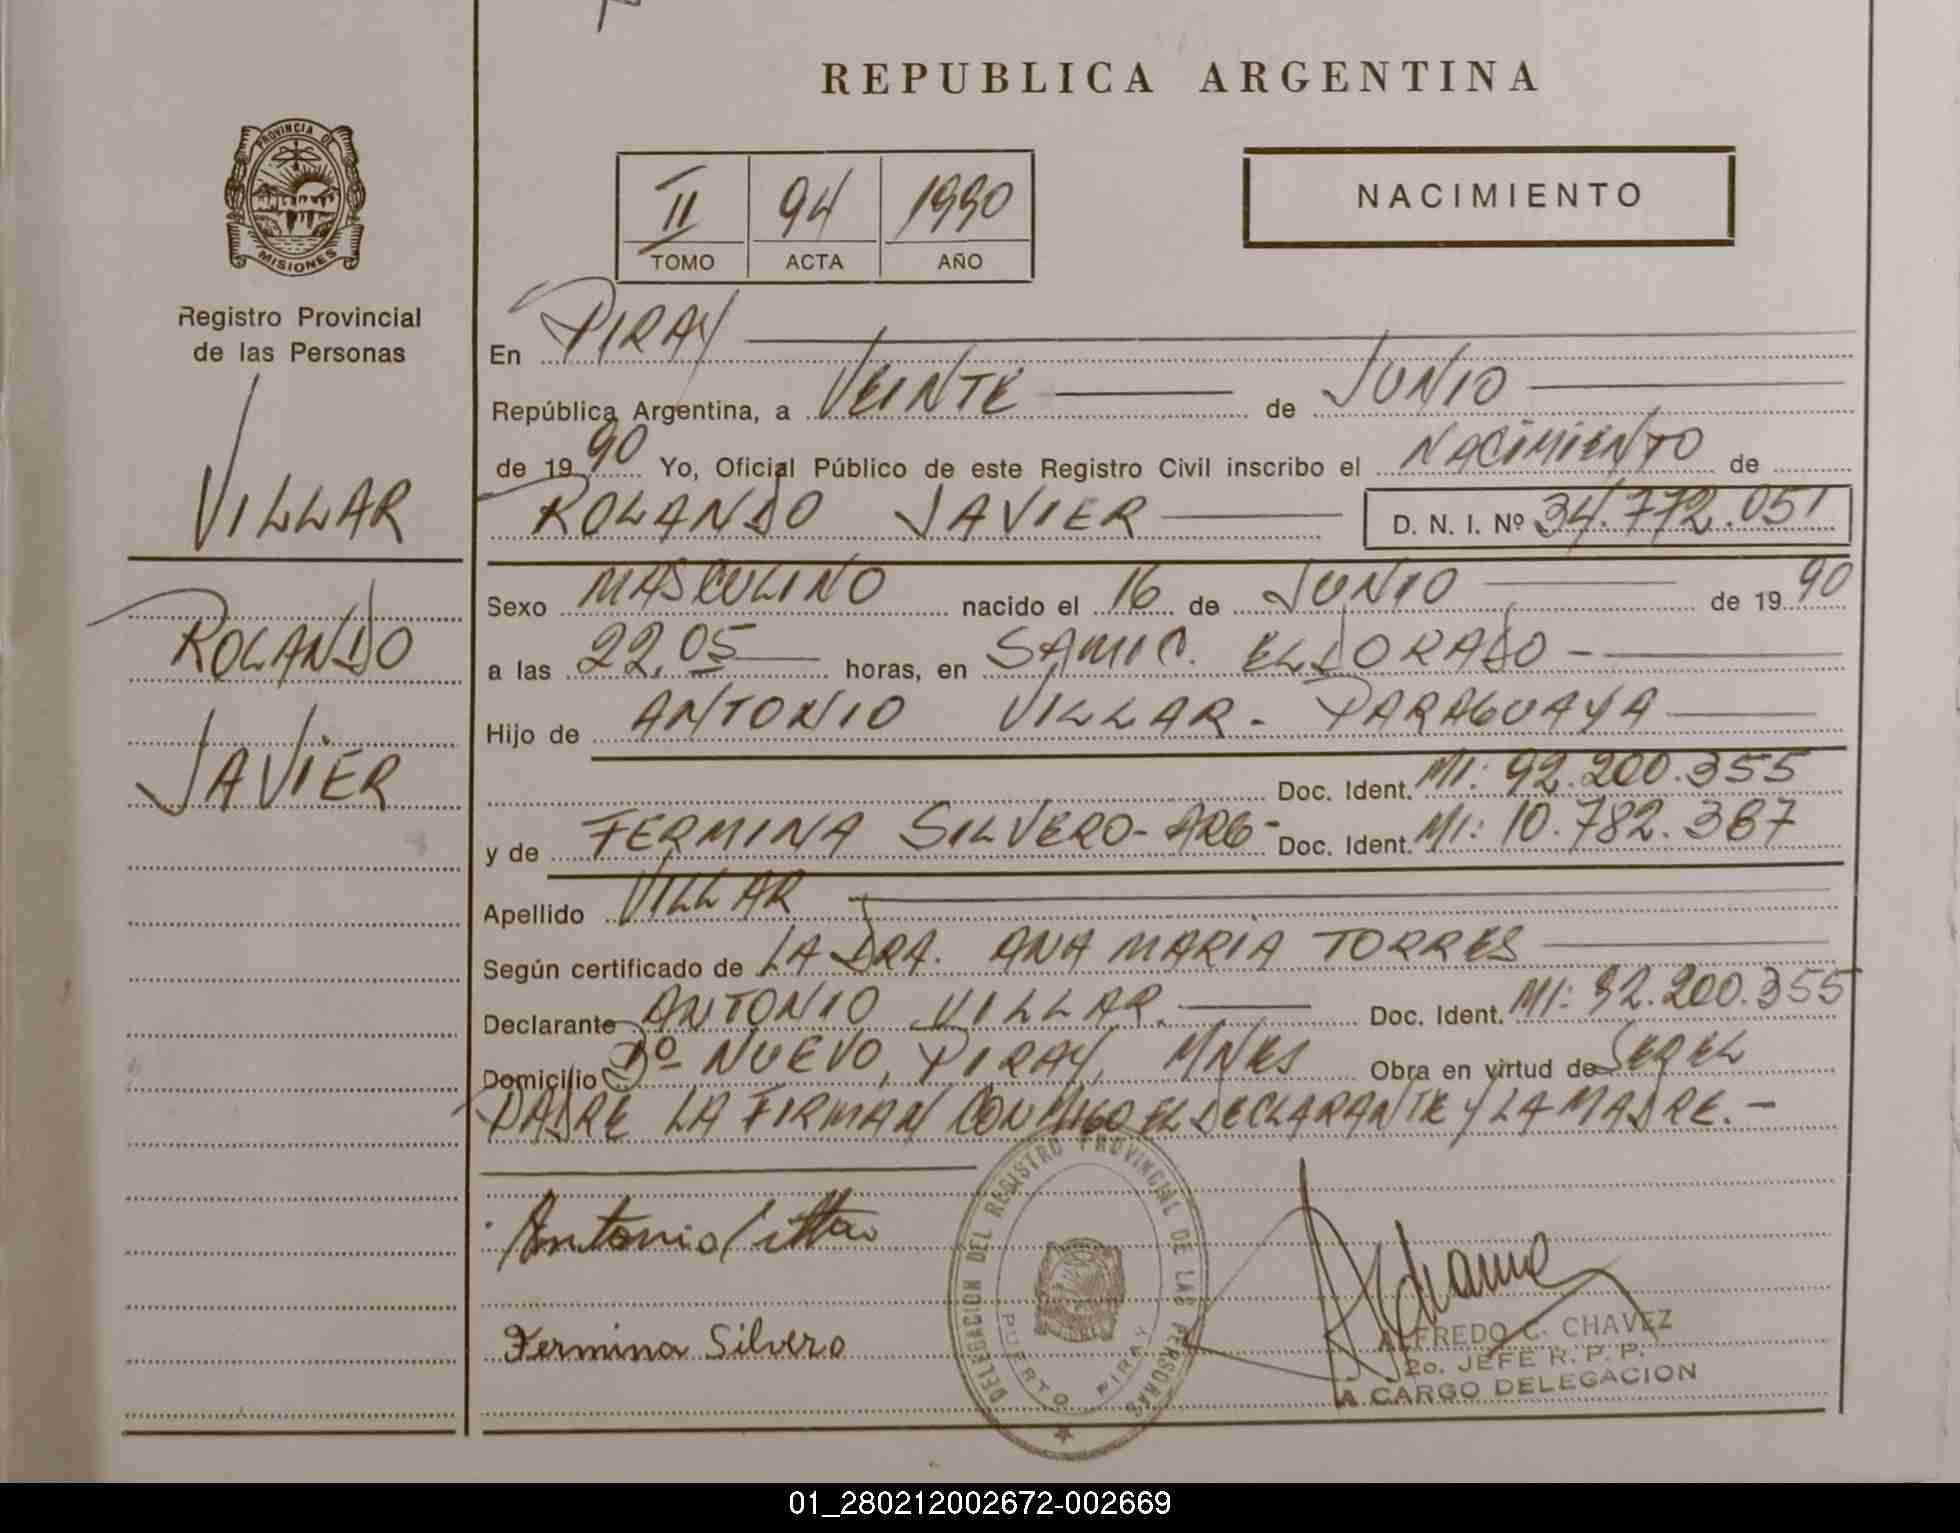 REPUBLICA ARGENTINA
PROVINCIA DE
MISIONES
Registro Provincial
de las Personas
VILLAR
ROLANDO
JAVIER
II 94 1990
TOMO ACTA AÑO
NACIMIENTO
En PIRAY
República Argentina, a VEINTE de JUNIO
de 19 90 Yo, Oficial Público de este Registro Civil inscribo el NACIMIENTO de
ROLANDO JAVIER D. N. I. Nº 34.772.051
Sexo MASCULINO nacido el 16 de JUNIO de 19 90
a las 22,05 horas, en SAMIC. ELDORADO -
Hijo de ANTONIO VILLAR - PARAGUAYA
Doc. Ident. MI: 92.200.355
y de FERMINA SILVERO - ARG - Doc. Ident. MI: 10.782.387
Apellido VILLAR
Según certificado de LA DRA. ANA MARIA TORRES
Declarante ANTONIO VILLAR. Doc. Ident. MI: 92.200.355
Domicilio Bº NUEVO, PIRAY, MNES Obra en virtud de SER EL
PADRE LA FIRMAN CONMIGO EL DECLARANTE Y LA MADRE. -
Antonio Villar
Fermina Silvero
DELEGACION DEL REGISTRO PROVINCIAL DE LAS PERSONAS
PUERTO PIRAY
ALFREDO C. CHAVEZ
2o. JEFE R. P. P.
A CARGO DELEGACION
01_280212002672-002669